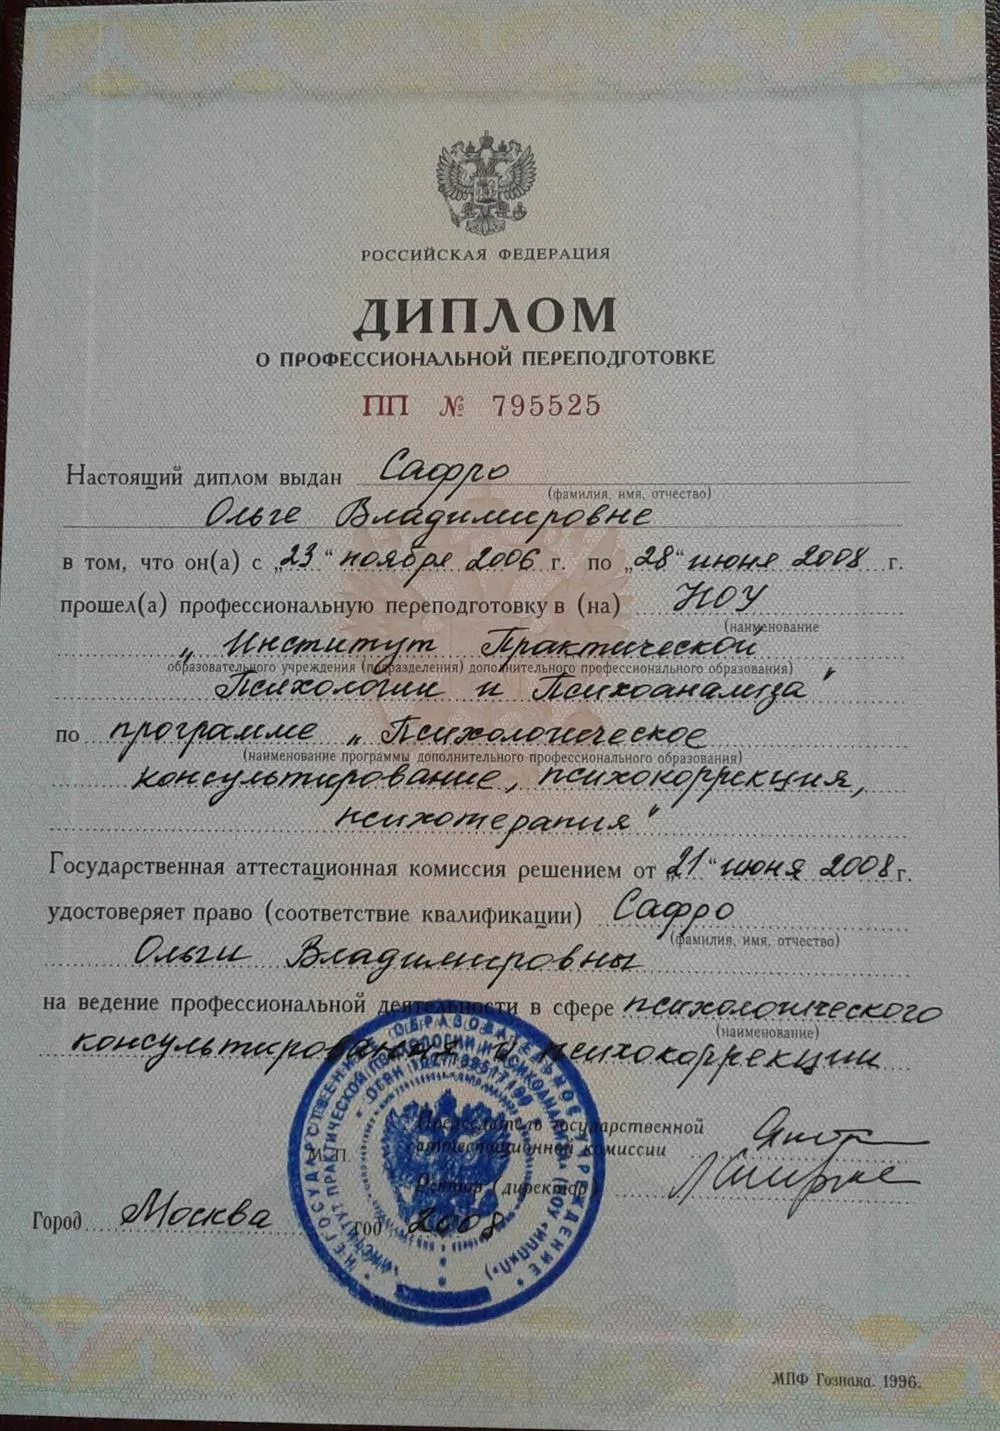 РОССИЙСКАЯ ФЕДЕРАЦИЯ
ДИПЛОМ
О ПРОФЕССИОНАЛЬНОЙ ПЕРЕПОДГОТОВКЕ
ПП № 795525
Настоящий диплом выдан Сафро
(фамилия, имя, отчество)
Ольге Владимировне
в том, что он(а) с „23“ ноября 2006 г. по „28“ июня 2008 г.
прошел(а) профессиональную переподготовку в (на) НОУ
(наименование
„Институт Практической
образовательного учреждения (подразделения) дополнительного профессионального образования)
Психологии и Психоанализа“
по программе „Психологическое
(наименование программы дополнительного профессионального образования)
консультирование, психокоррекция,
психотерапия“
Государственная аттестационная комиссия решением от „21“ июня 2008 г.
удостоверяет право (соответствие квалификации) Сафро
(фамилия, имя, отчество)
Ольги Владимировны
на ведение профессиональной деятельности в сфере психологического
(наименование)
консультирования и психокоррекции
Председатель государственной
аттестационной комиссии
М. П.
Ректор (директор)
Город Москва год 2008
НЕГОСУДАРСТВЕННОЕ ОБРАЗОВАТЕЛЬНОЕ УЧРЕЖДЕНИЕ
ИНСТИТУТ ПРАКТИЧЕСКОЙ ПСИХОЛОГИИ И ПСИХОАНАЛИЗА (НОУ «ИППиП»)
МПФ Гознака. 1996.